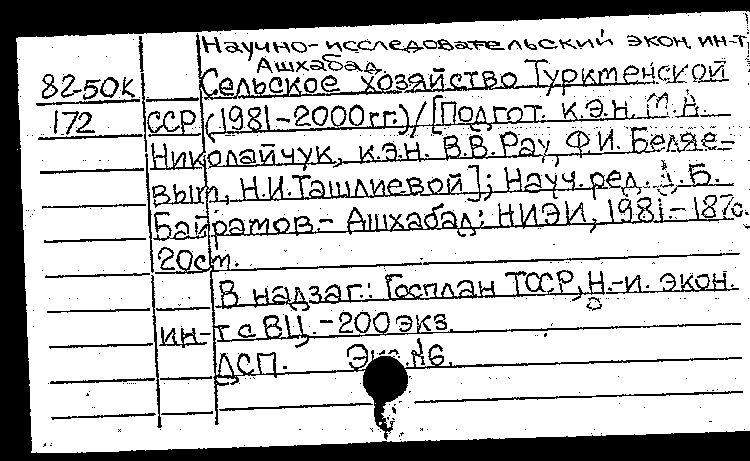 Научно-исследовательский экон. ин-т,
Ашхабад.
82-50к Сельское хозяйство Туркменской
172 ССР (1981-2000гг.)/[Подгот. к.э.н. М.А.
Николайчук, к.э.н. В.В.Рау, Ф.И. Беляе-
вым, Н.И.Ташлиевой]; Науч.ред. А.Б.
Байрамов.- Ашхабад: НИЭИ, 1981.- 187с.
20см.
В надзаг.: Госплан ТССР, Н.-и. экон.
ин-т с ВЦ. - 200 экз.
ДСП. Экз.№6.